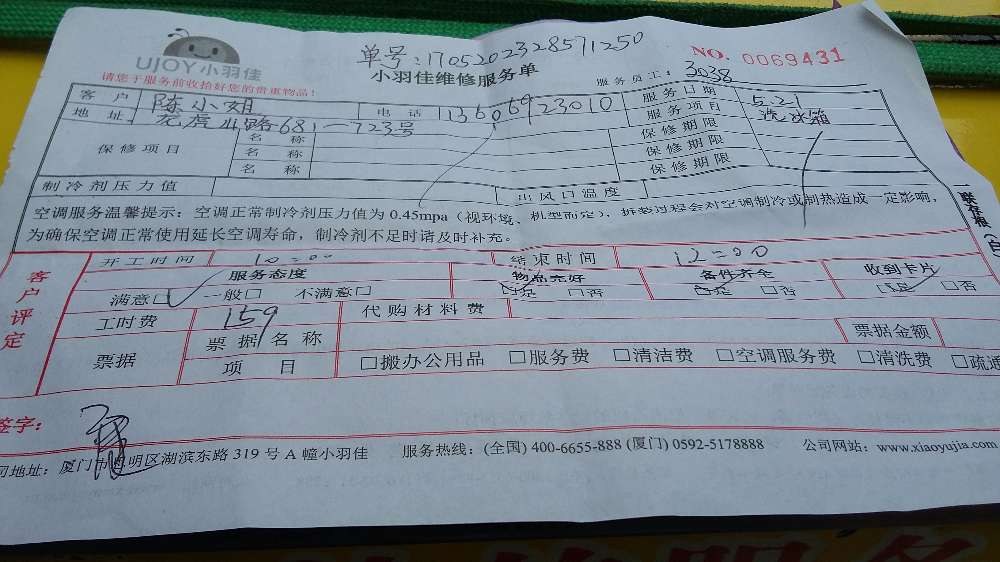 UJOY小羽佳
单号:1705202328571250
NO. 0069431
小羽佳维修服务单
请您于服务前收拾好您的贵重物品!
服务员工: 3038
客户 陈小姐 电话 13606923010 服务日期 5.21
地址 龙虎山路681-723号 服务项目 洗冰箱
保修项目
名称 保修期限
名称 保修期限
名称 保修期限
制冷剂压力值 出风口温度
空调服务温馨提示:空调正常制冷剂压力值为 0.45mpa(视环境、机型而定),拆装过程会对空调制冷或制热造成一定影响,
为确保空调正常使用延长空调寿命,制冷剂不足时请及时补充。
客户评定
开工时间 10=00 结束时间 12=00
服务态度 物品完好 备件齐全 收到卡片
满意□ 一般□ 不满意□ □是 □否 □是 □否 □是 □否
工时费 159 代购材料费
票据 票据名称 票据金额
项目 □搬办公用品 □服务费 □清洁费 □空调服务费 □清洗费 □疏通
签字:
司地址:厦门市思明区湖滨东路 319 号 A 幢小羽佳 服务热线:(全国) 400-6655-888 (厦门) 0592-5178888 公司网站:www.xiaoyujia.com